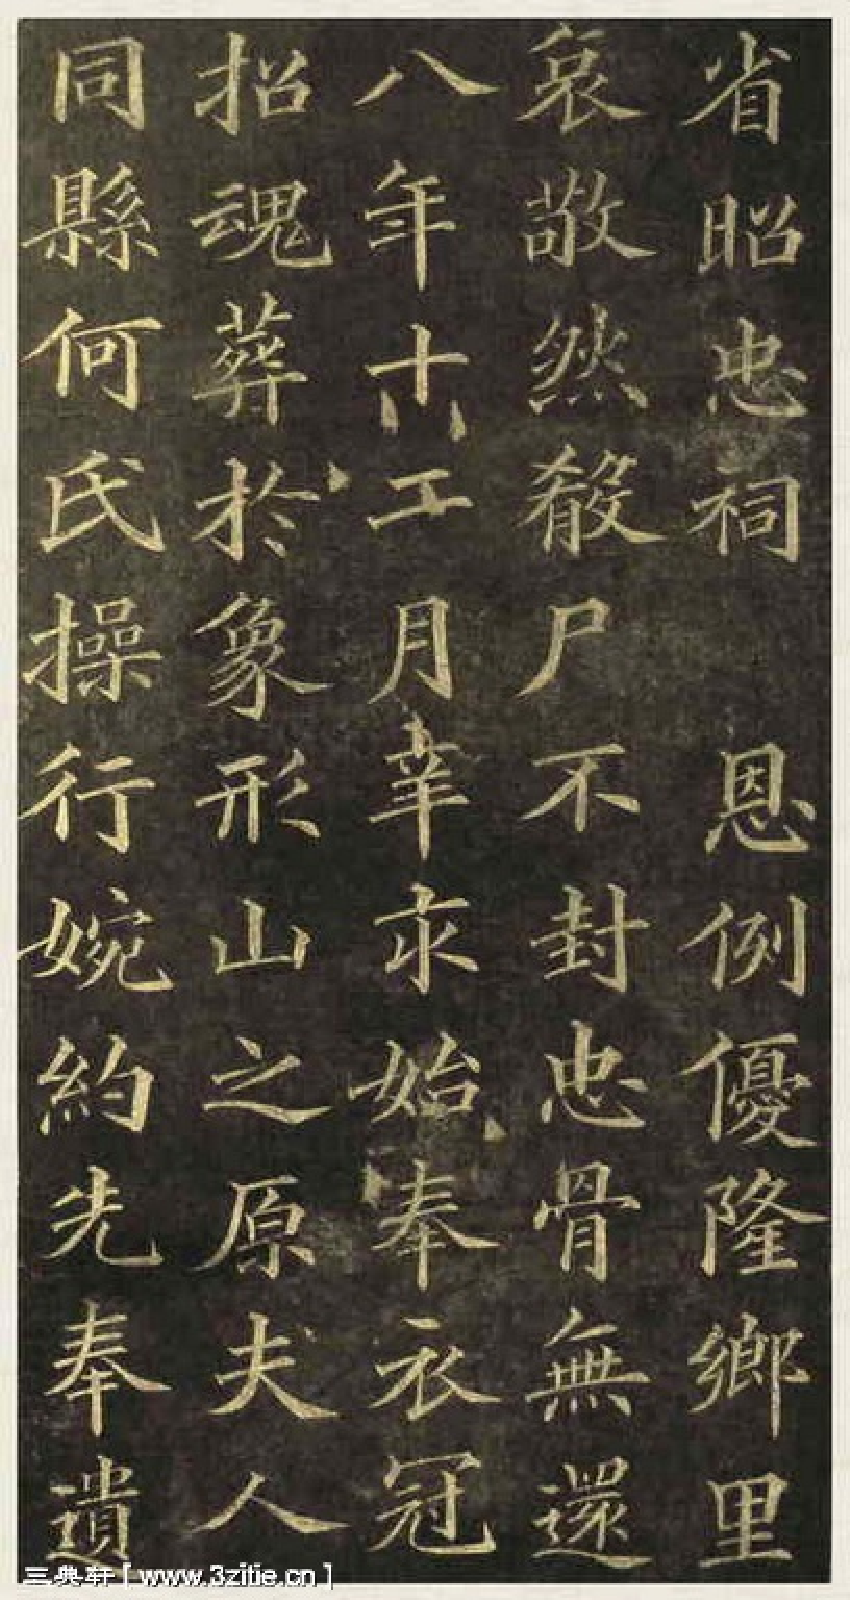 省昭忠祠　恩例優隆鄉里
哀敬然殽尸不封忠骨無還
八年十二月辛未始奉衣冠
招魂葬於象形山之原夫人
同縣何氏操行婉約先奉遺
三典轩［www.3zitie.cn］